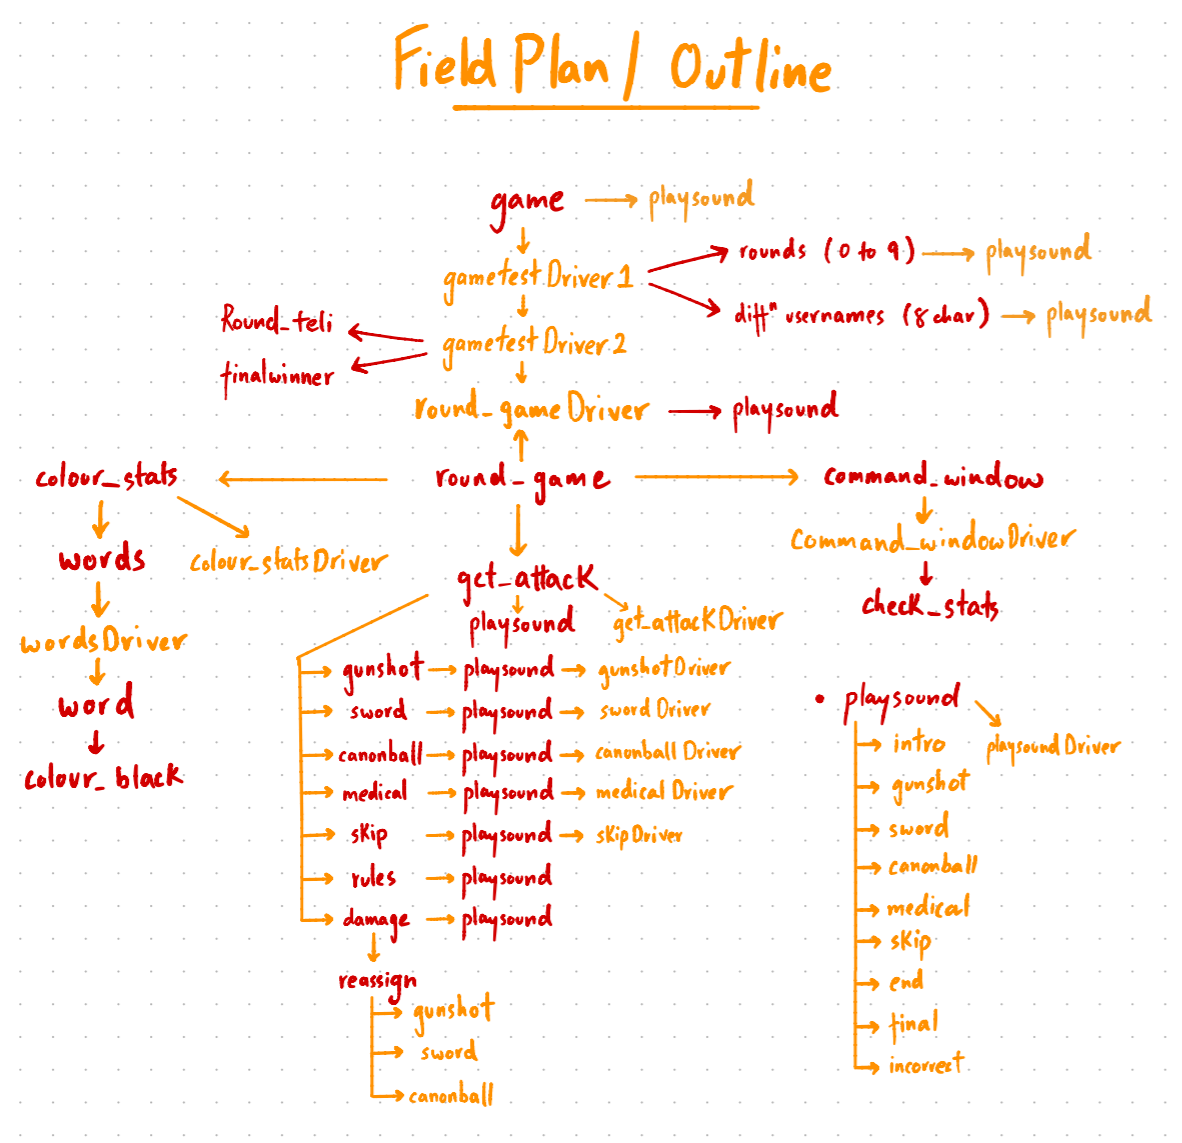 Field Plan / Outline
game → playsound
gametest Driver 1
rounds (0 to 9) → playsound
diffⁿ usernames (8 char) → playsound
Round_teli
gametest Driver 2
finalwinner
round_game Driver → playsound
colour_stats
round_game
command_window
words
colour_statsDriver
command_windowDriver
get_attack
check_stats
playsound
get_attackDriver
wordsDriver
gunshot → playsound → gunshotDriver
word
sword → playsound → sword Driver
canonball → playsound → canonball Driver
colour_black
medical → playsound → medical Driver
skip → playsound → skip Driver
rules → playsound
damage → playsound
reassign
gunshot
sword
canonball
• playsound
playsound Driver
intro
gunshot
sword
canonball
medical
skip
end
final
incorrect